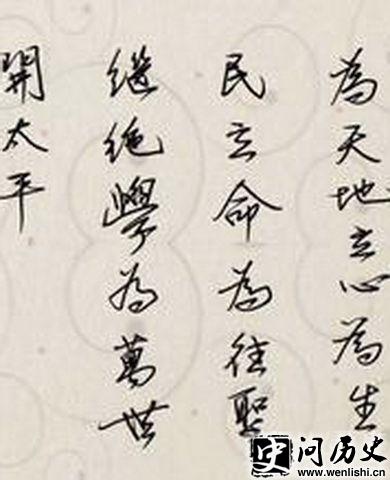 為天地立心為生
民立命為往聖
继绝學為萬世
開太平
史问历史
www.wenlishi.cn